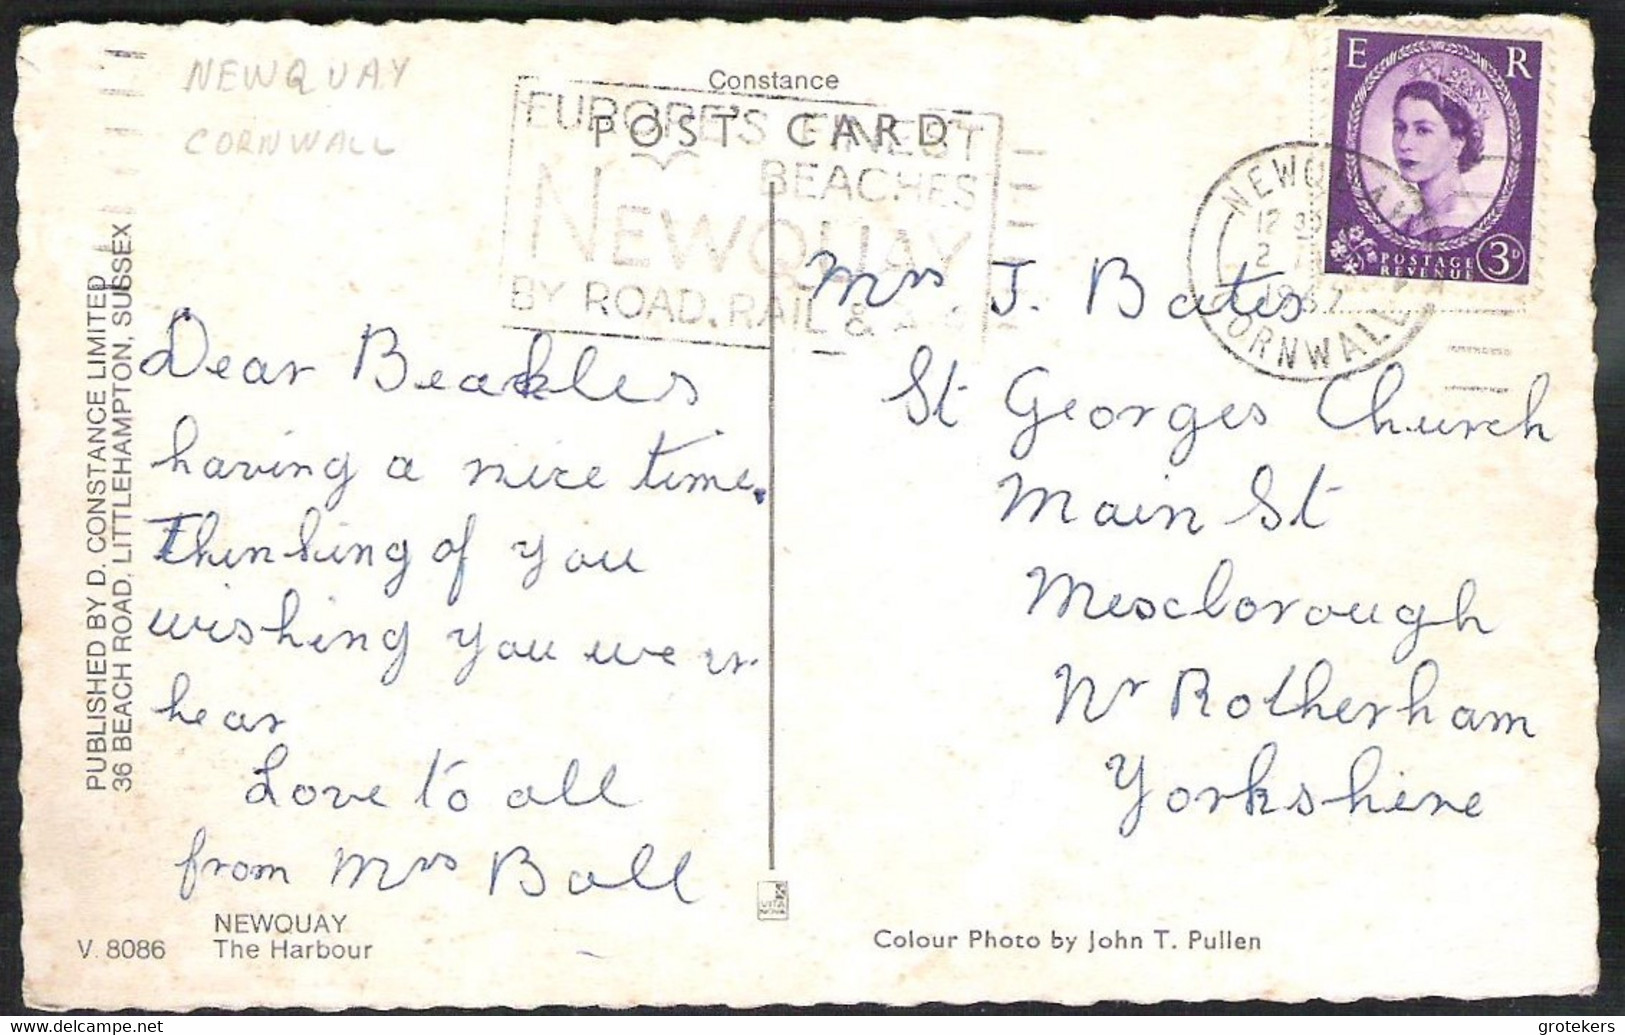 NEWQUAY
CORNWALL
Constance
POST CARD
EUROPE'S FINEST
BEACHES
NEWQUAY
BY ROAD, RAIL &
E R
POSTAGE
REVENUE
3D
NEWQUAY
CORNWALL
PUBLISHED BY D. CONSTANCE LIMITED
36 BEACH ROAD, LITTLEHAMPTON, SUSSEX
Dear Beakles
having a nice time.
Thinking of you
wishing you were
hear
Love to all
from Mrs Ball
Mrs J. Bates
St Georges Church
Main St
Mexborough
Nr Rotherham
Yorkshire
NEWQUAY
V. 8086 The Harbour
VITA
NOVA
Colour Photo by John T. Pullen
grotekers